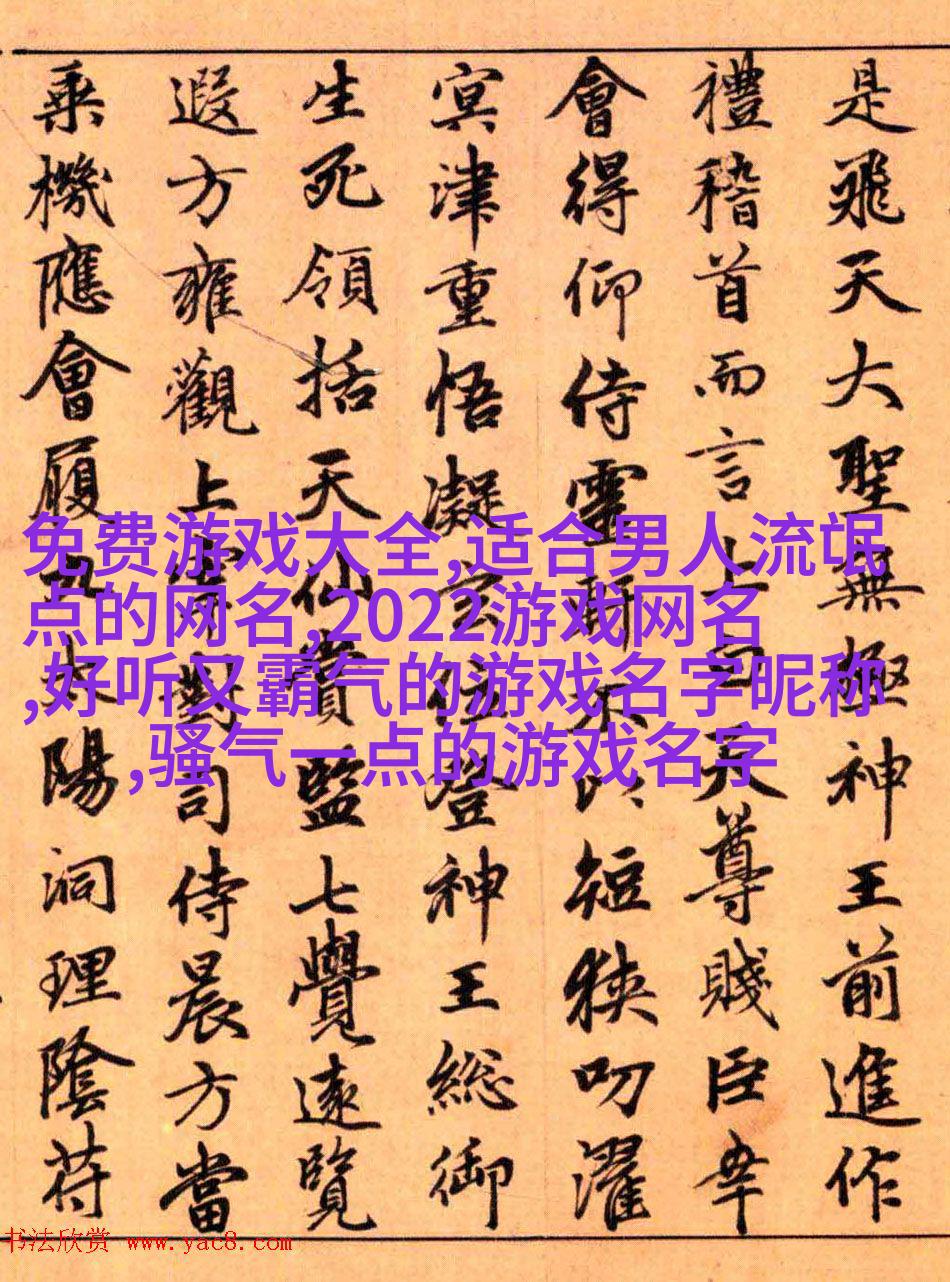 是飛天大聖無極神王前進作
禮稽首而言上白天尊賤臣幸
會得仰侍靈軒不以短狹叨濯
冥津重悟凝玄登神王総御
生死領括天仙監七覺遠覽
遐方雍觀上司侍晨方當
乗機應會履太陽洞理陰符
免费游戏大全,适合男人流氓
点的网名,2022游戏网名
,好听又霸气的游戏名字昵称
,骚气一点的游戏名字
书法欣赏 www.yac8.com